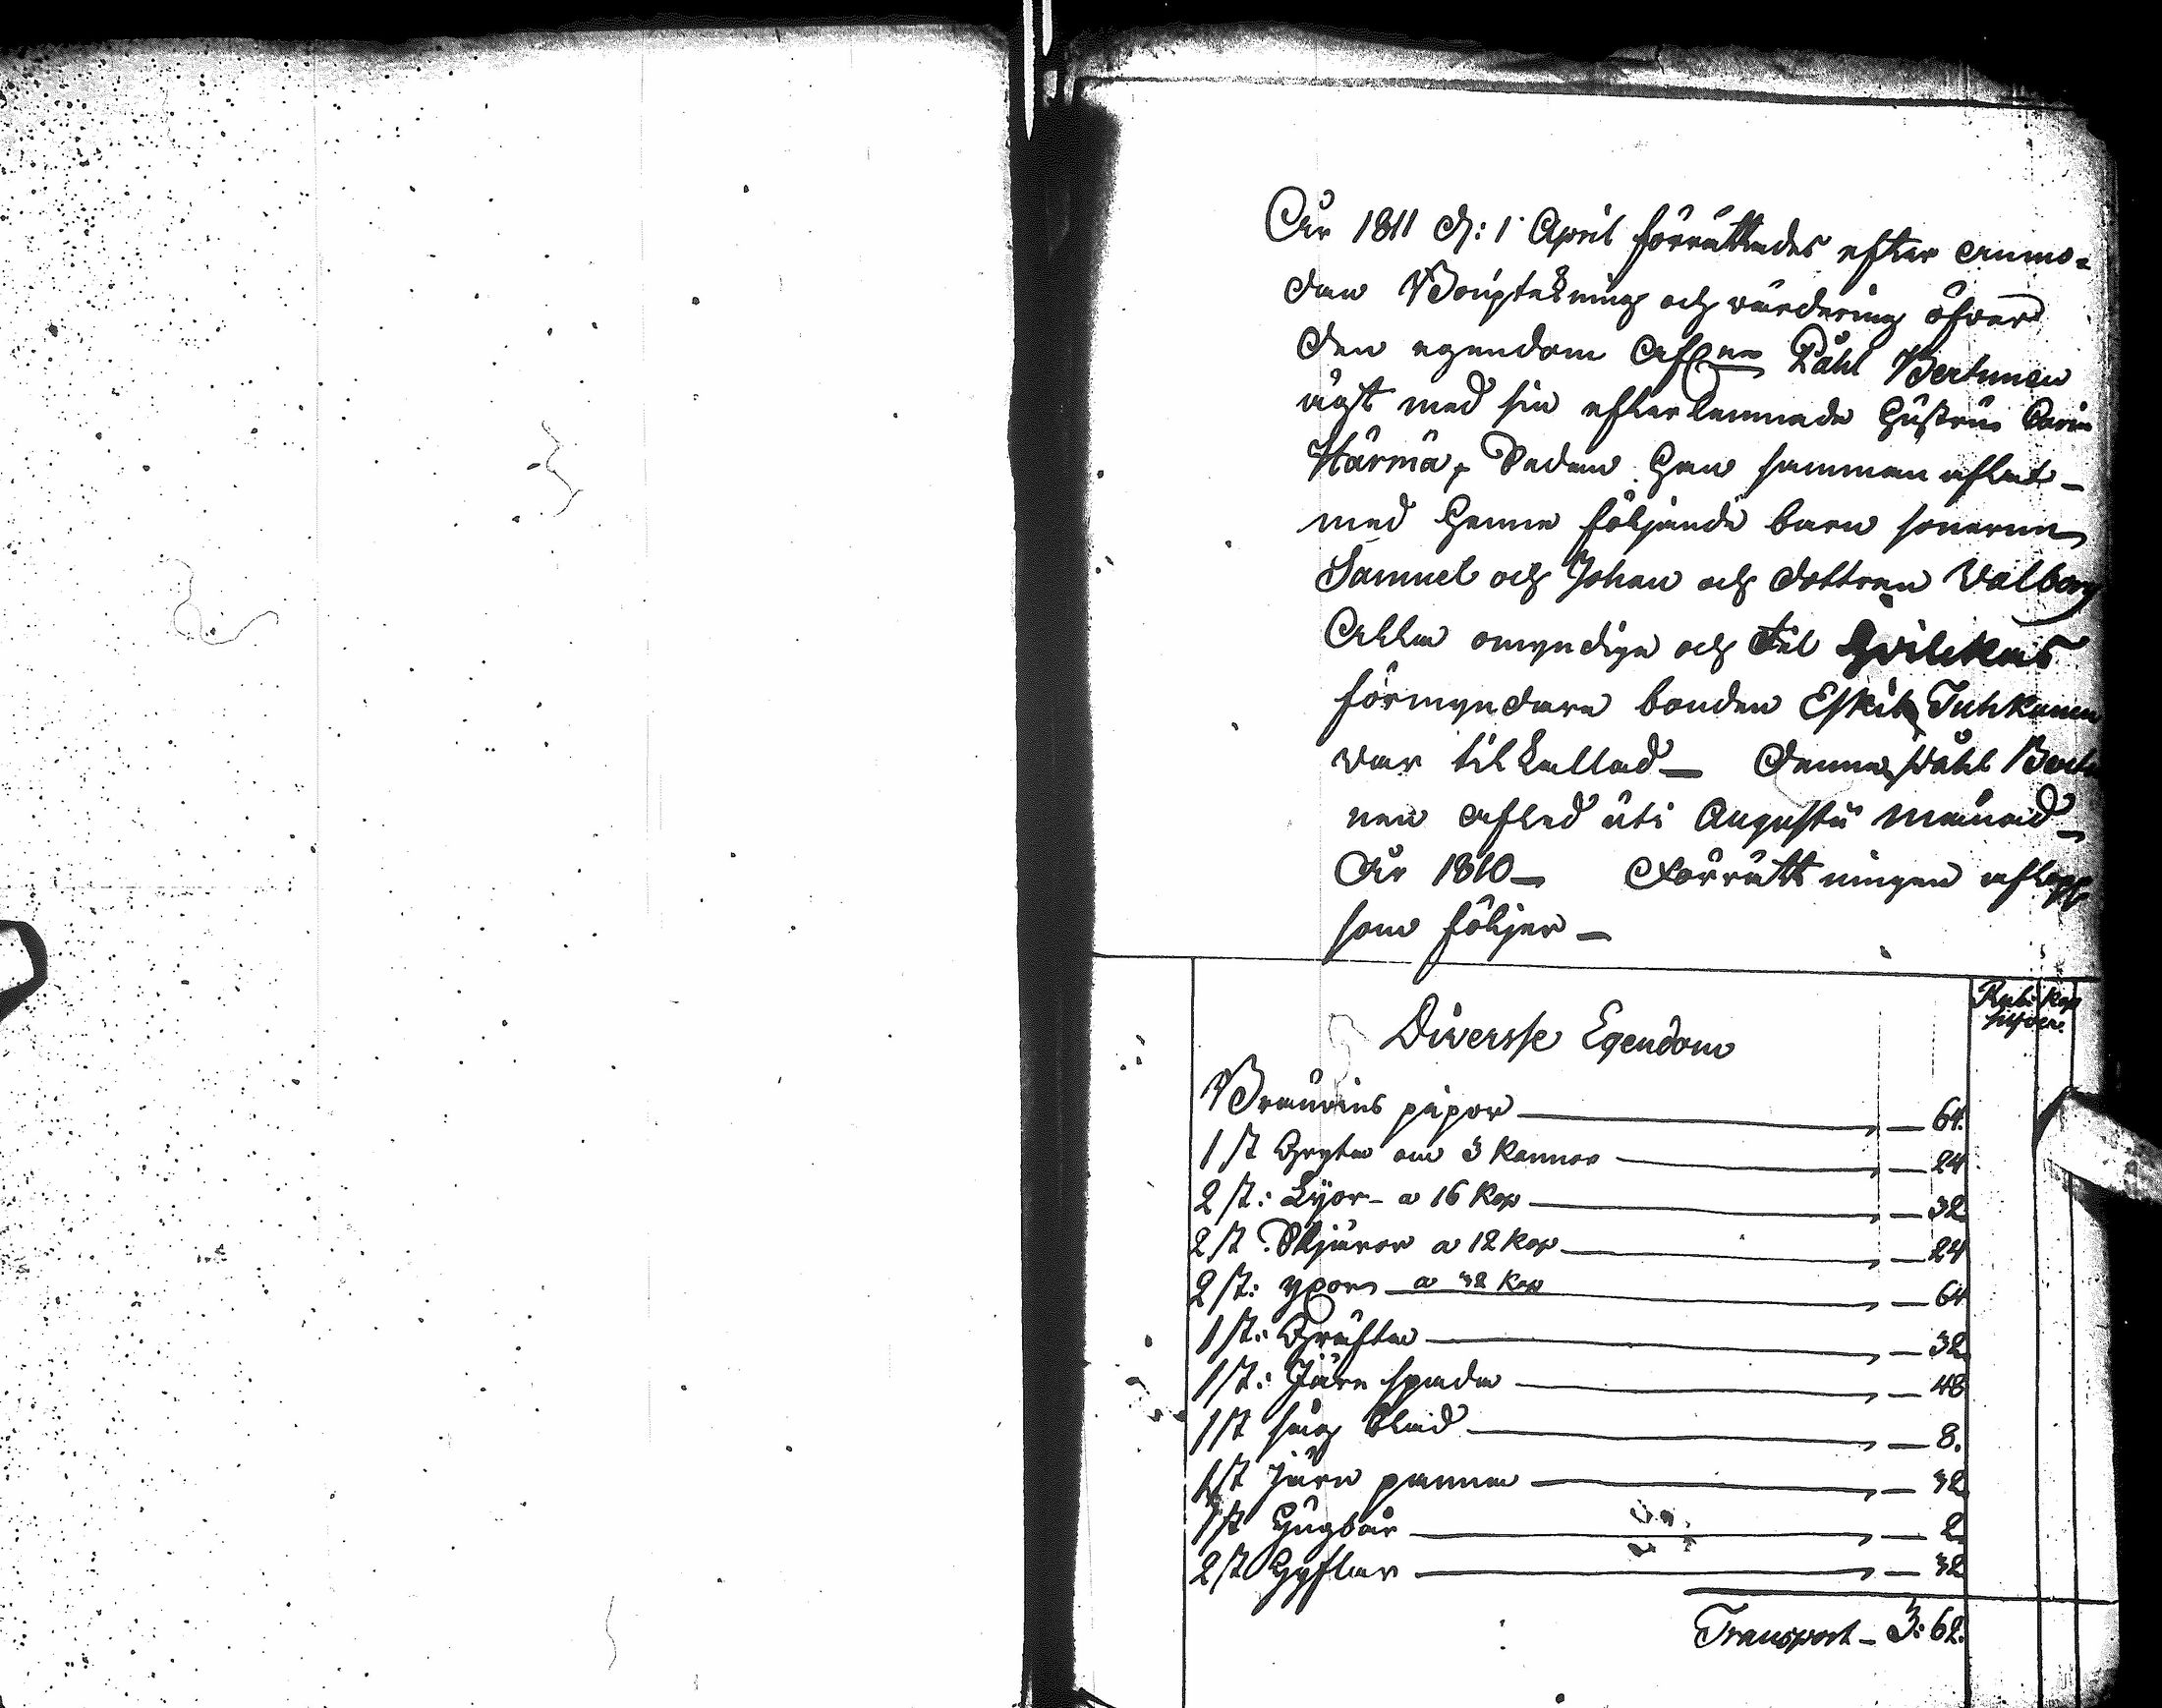 År 1811 d: 1 April förrättades efter anmo=
dan Bouptekning och värdering öfver
den egendom Afl:ne Påhl Bertunen
ägt med sin efterlemnade Hustru Carin
Härmä, Sedan han samman aflat
med henne följande barn sönerne
Samuel och Johan och dottren Valborg
Alla omyndige och til hvilkas
förmyndare bonden Eskil Tuhkanen
var tilkallad – Denne Påhl Bertu
nen afled uti Augusti månad
År 1810 – Förrättningen aflopp
som följer –
Rub: Kop
silfver
Diversse Egendom
Bränvins pipor — 64.
1 st Gryta om 3 Kannor — 24
2 st: Lyor – a 16 Kop — 32
2 st Skjäror a 12 Kop — 24
2 st: yxor a 32 Kop — 64
1 st: Gräfta — 32
1 st: Järn spada — 48
1 st såg blad — 8.
1 st Järn panna — 32
1 st — 2
2 st Hyflar — 32
Transport – 3: 62.